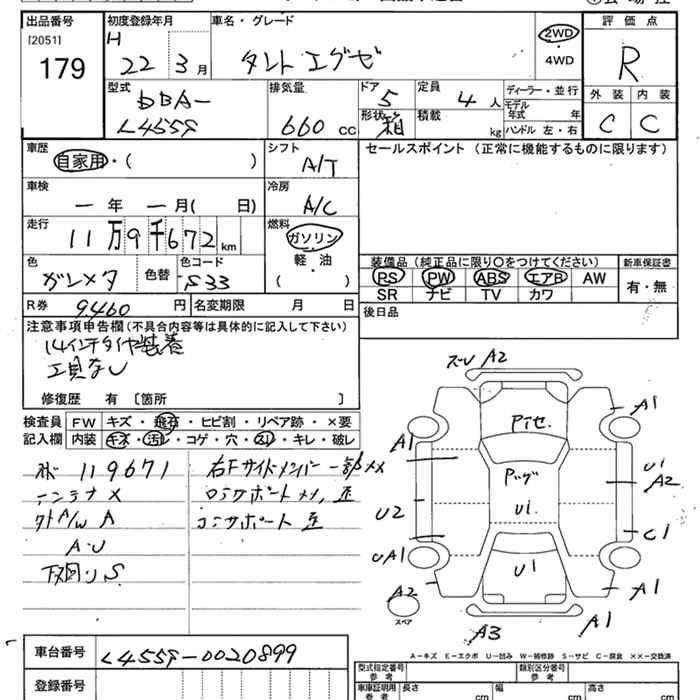 出品番号
[2051]
179
初度登録年月
H
22 3月
車名・グレード
タント エグゼ
2WD
・
4WD
評価点
R
外装 内装
C C
型式
DBA-
L455S
排気量
660 cc
ドア
5
形状
箱
定員
4人
積載
kg
ディーラー・並行
モデル
年式 年
ハンドル 左・右
車歴
自家用・( )
シフト
A/T
セールスポイント (正常に機能するものに限ります)
車検
ー年ー月( 日)
冷房
A/C
走行
11万9千672km
燃料
ガソリン
軽・油
( )
色
ガンメタ
色替
色コード
S33
装備品 (純正品に限り〇をつけてください)
PS PW ABS エアB AW
SR ナビ TV カワ
新車保証書
有・無
R券
9460円
名変期限 月 日
後日品
注意事項申告欄(不具合内容等は具体的に記入して下さい)
14インチタイヤ装着
工具なし
修復歴 有 〔箇所 〕
検査員
記入欄
FW キズ・飛石・ヒビ割・リペア跡・×要
内装 キズ・汚レ・コゲ・穴・スレ・キレ・破レ
119671
右Fサイドメンバー一部××
ロアサポート
コアサポート 歪
A・U
下廻りS
A2
A1
Pイセ.
A1
Pッグ
U1
A2
U2
U1
C1
UA1
U1
A2
スペア
A1
A3
A1
A-キズ E-エクボ U-凹み W-補修跡 S-サビ C-腐食 ××-交換済
車台番号
L455S-0020899
登録番号
型式指定番号
参考
類別区分番号
参考
車庫証明用
参考
長さ cm
幅 cm
高さ cm